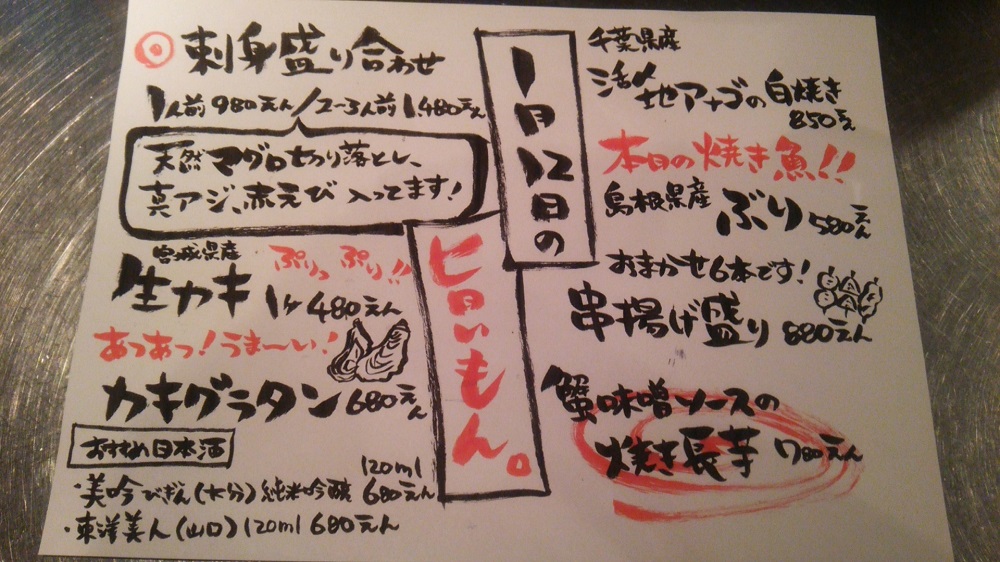 1月12日の
旨いもん。
刺身盛り合わせ
1人前980えん/2~3人前1,480えん
天然マグロ切り落とし、
真アジ、赤えび入ってます!
宮城県産
ぷりっぷり!!
生カキ 1ヶ480えん
あつあつ!うま〜い!
カキグラタン680えん
おすすめ日本酒
・美吟びぎん(大分)純米吟醸 120ml 680えん
・東洋美人(山口)120ml 680えん
千葉県産
活〆地アナゴの白焼き
850えん
本日の焼き魚!!
島根県産 ぶり580えん
おまかせ6本です!
串揚げ盛り880えん
蟹味噌ソースの
焼き長芋780えん